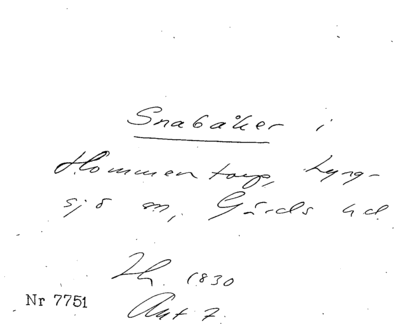 Snabåker i
Hommentorp, Lyng-
sjö m, Gärds hd.
Th. 1830
Ant 7.
Nr 7751